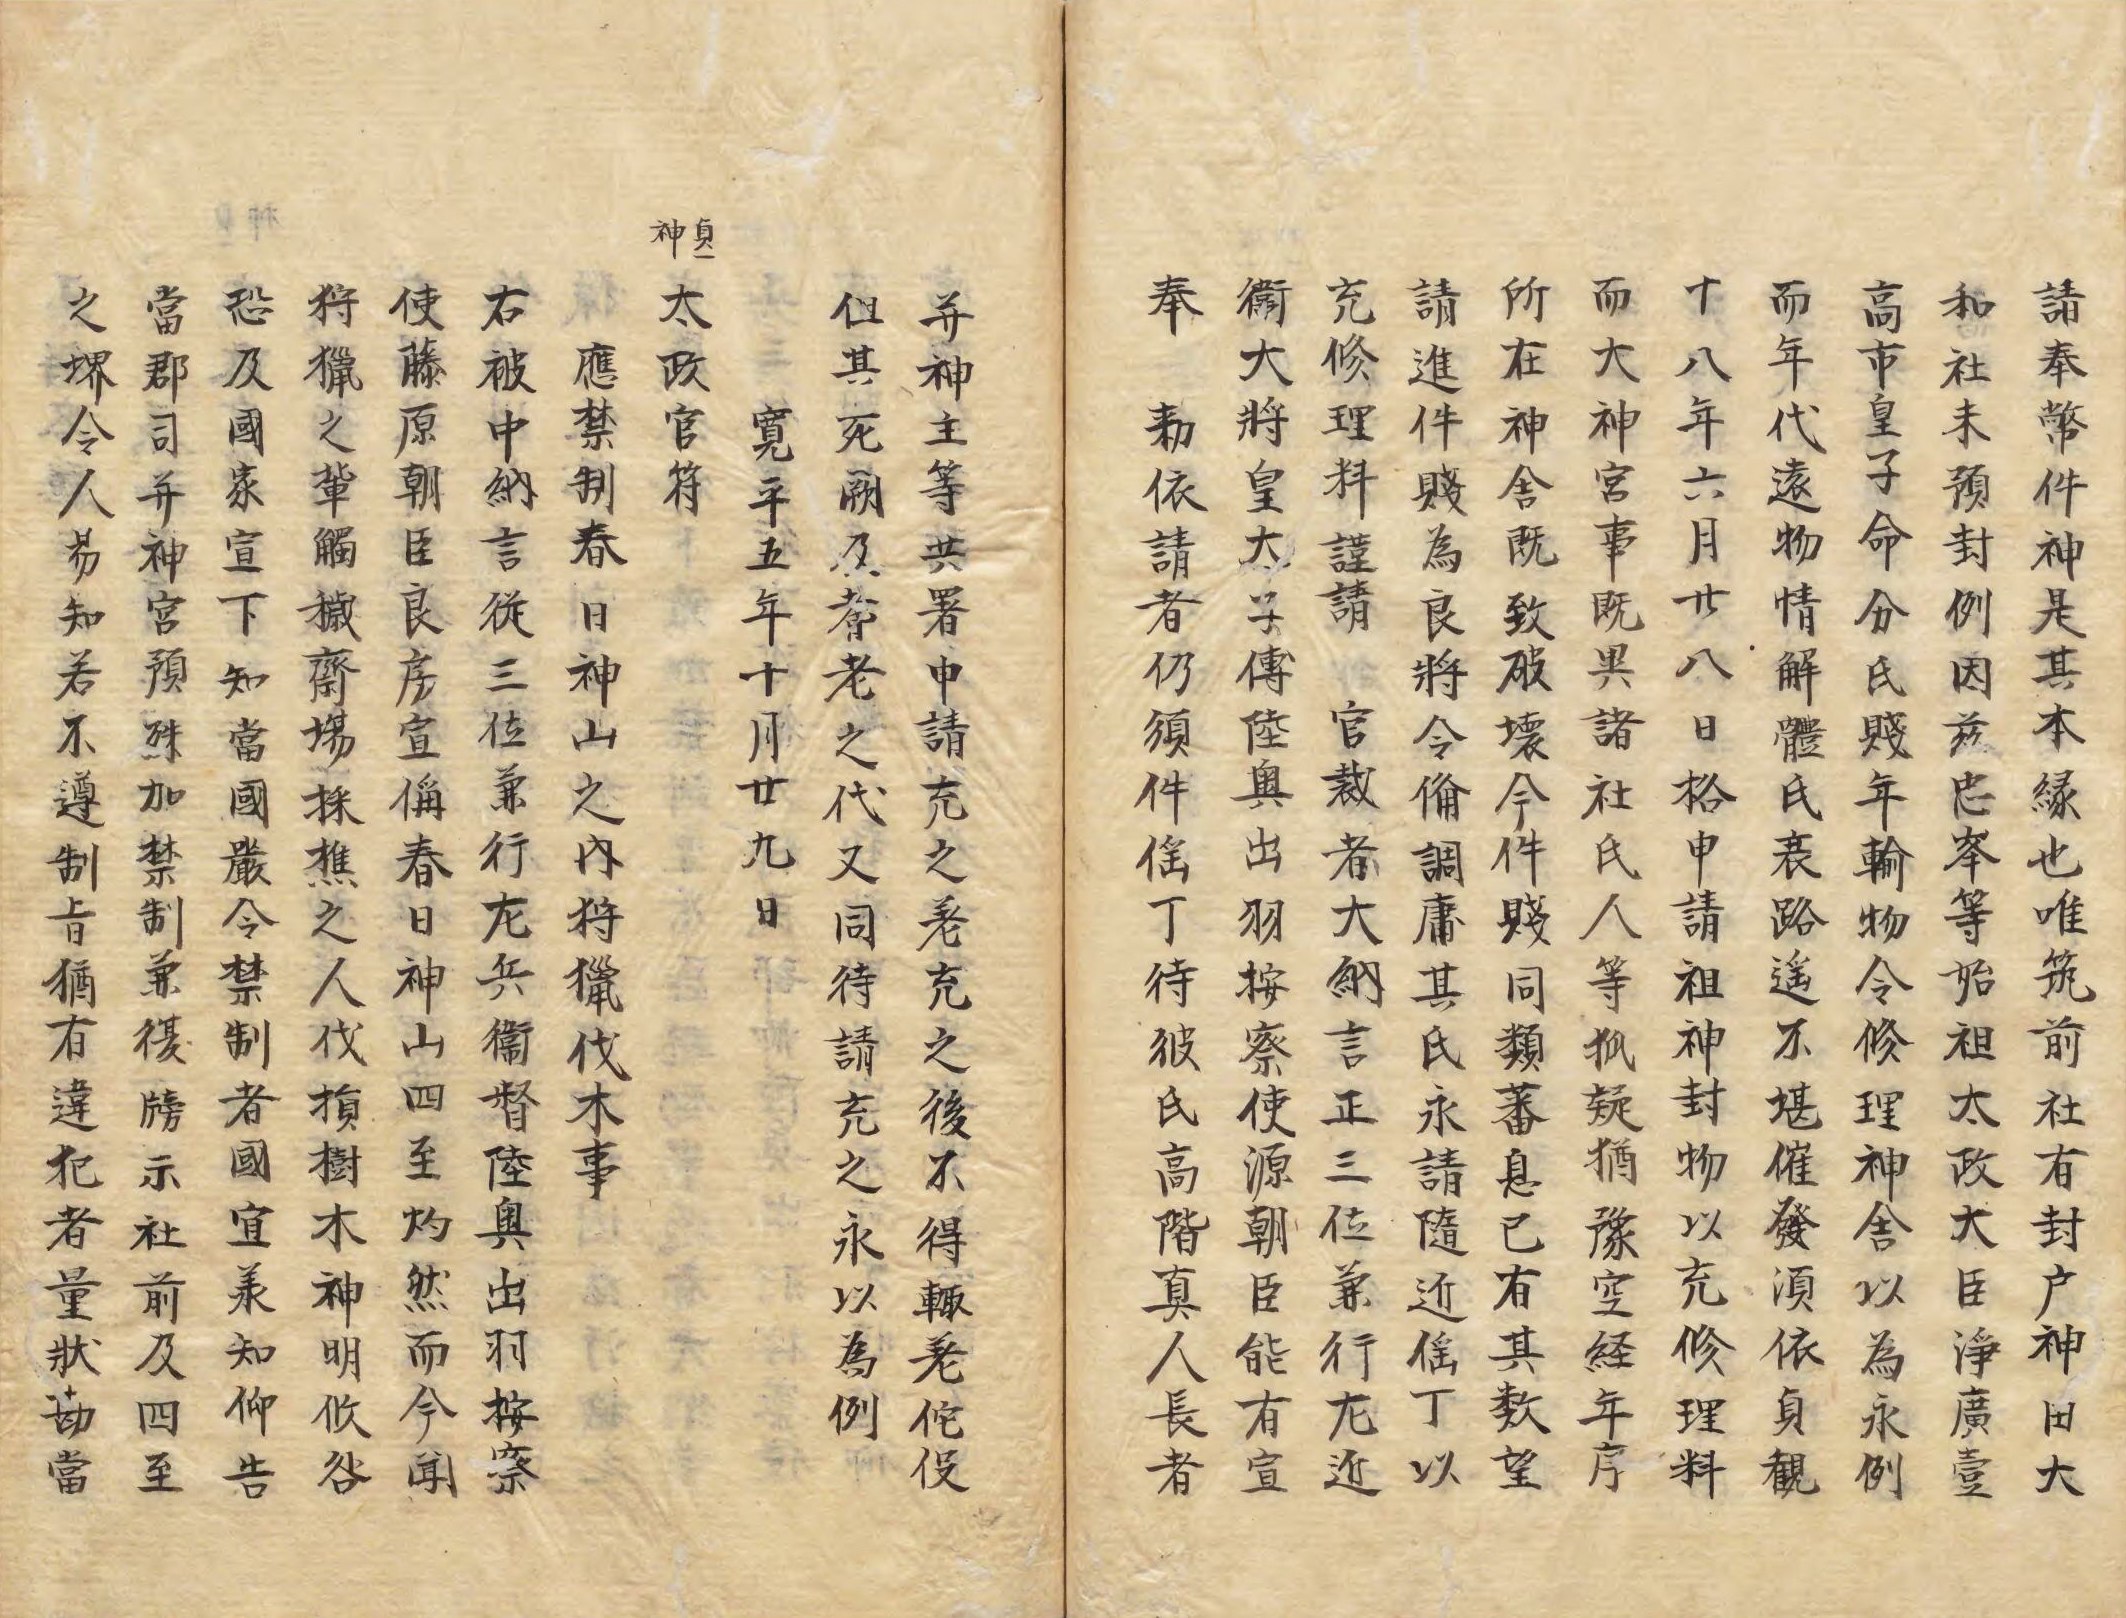 請奉幣件神是其本縁也唯筑前社有封户神田大
和社未預封例因兹忠峯等始祖太政大臣淨廣壹
高市皇子命分氏賤年輸物令修理神舎以為永例
而年代遠物情解體氏衰路遥不堪催發須依貞観
十八年六月廿八日格申請祖神封物以充修理料
而大神宮事既異諸社氏人等狐疑猶豫空経年序
所在神舎既致破壊今件賤同類蕃息已有其数望
請進件賤為良将令俻調庸其氏永請随近傜丁以
充修理料謹請　官裁者大納言正三位兼行左近
衞大将皇太子傳陸奥出羽按察使源朝臣能有宣
奉　勅依請者仍須件傜丁待彼氏高階真人長者
并神主等共署申請充之差充之後不得輙差佗役
但其死闕及耆老之代又同待請充之永以為例
寛平五年十月廿九日
貞一
神
太政官符
應禁制春日神山之内狩獵伐木事
右被中納言従三位兼行左兵衞督陸奥出羽按察
使藤原朝臣良房宣偁春日神山四至灼然而今聞
狩獵之輩觸穢齋場採樵之人伐損樹木神明攸咎
恐及國家宣下知當國嚴令禁制者國宜承知仰告
當郡司并神宮預殊加禁制兼復牓示社前及四至
之堺令人易知若不遵制旨猶有違犯者量状勘當